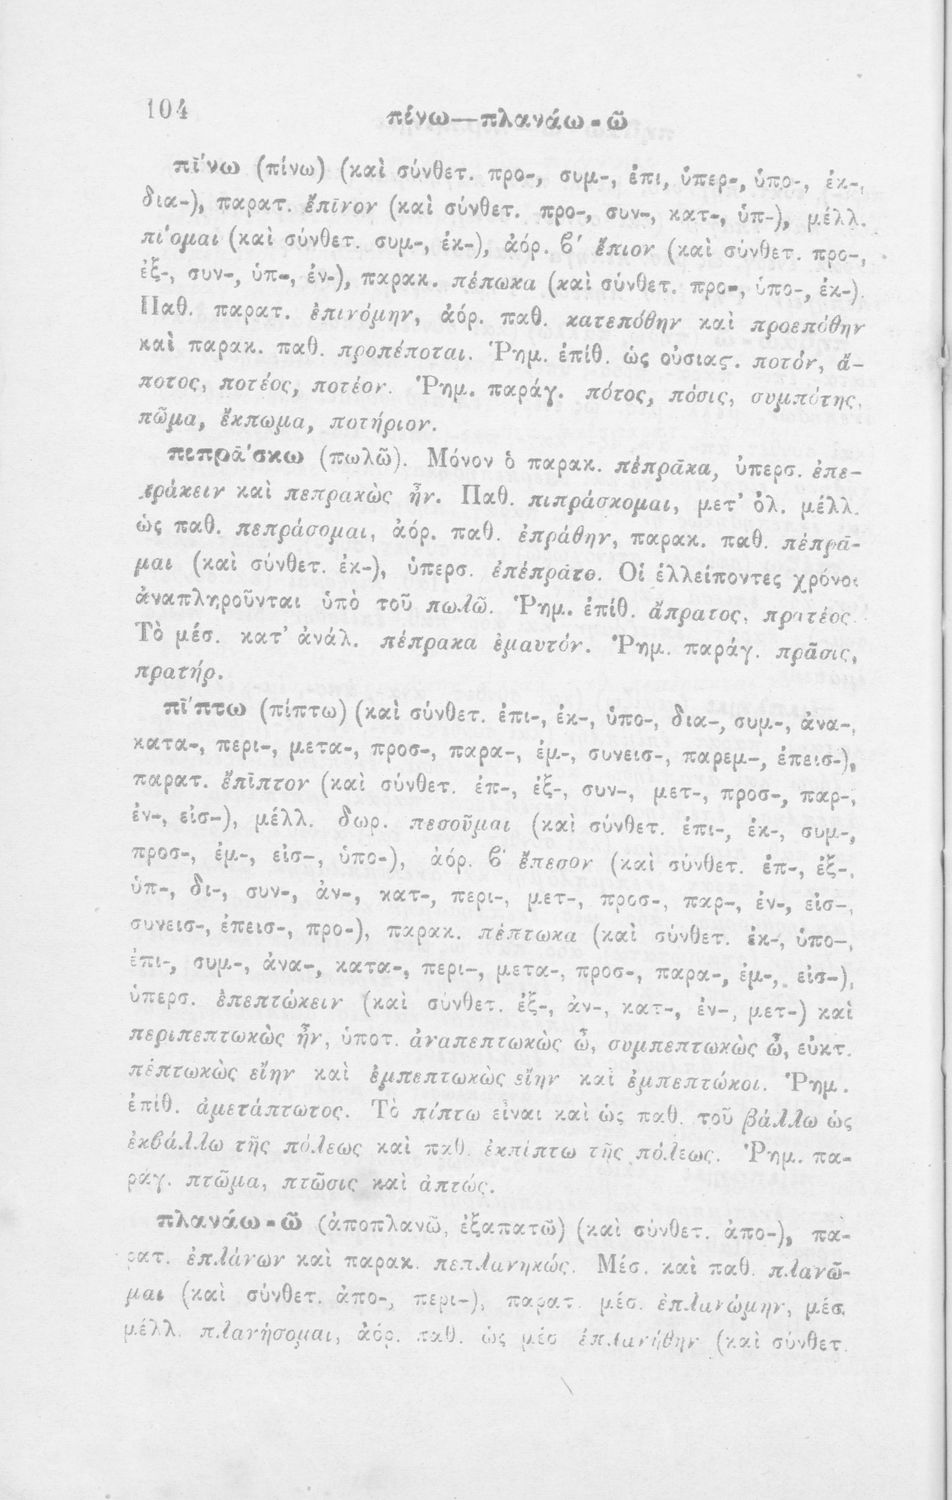 104
πίνω—πλανάω-ῶ
πῑ́νω (πίνω) (καὶ σύνθετ. προ-, συμ-, ἐπι, ὑπερ-, ὑπο-, ἐκ-,
δια-), παρατ. ἔπῑνον (καὶ σύνθετ. προ-, συν-, κατ-, ὑπ-), μέλλ.
πί̄ομαι (καὶ σύνθετ. συμ-, ἐκ-), ἀόρ. β′ ἔπιον (καὶ σύνθετ. προ-,
ἐξ-, συν-, ὑπ-, ἐν-), παρακ. πέπωκα (καὶ σύνθετ. προ-, ὑπο-, ἐκ-).
Παθ. παρατ. ἐπινόμην, ἀόρ. παθ. κατεπόθην καὶ προεπόθην
καὶ παρακ. παθ. προπέποται. Ῥημ. ἐπίθ. ὡς οὐσιας. ποτόν, ἄ-
ποτος, ποτέος, ποτέον. Ῥημ. παράγ. πότος, πόσις, συμπότης,
πῶμα, ἔκπωμα, ποτήριον.
πιπρᾱ́σκω (πωλῶ). Μόνον ὁ παρακ. πέπρᾱκα, ὑπερσ. ἐπε-
πράκειν καὶ πεπρακὼς ἦν. Παθ. πιπράσκομαι, μετ' ὀλ. μέλλ.
ὡς παθ. πεπράσομαι, ἀόρ. παθ. ἐπράθην, παρακ. παθ. πέπρᾱ-
μαι (καὶ σύνθετ. ἐκ-), ὑπερσ. ἐπέπρᾱτο. Οἱ ἐλλείποντες χρόνοι
ἀναπληροῦνται ὑπὸ τοῦ πωλῶ. Ῥημ. ἐπίθ. ἄπρατος, πρατέος.
Τὸ μέσ. κατ' ἀνάλ. πέπρακα ἐμαυτόν. Ῥημ. παράγ. πρᾶσις,
πρατήρ.
πῑ́πτω (πίπτω) (καὶ σύνθετ. ἐπι-, ἐκ-, ὑπο-, δια-, συμ-, ἀνα-,
κατα-, περι-, μετα-, προσ-, παρα-, ἐμ-, συνεισ-, παρεμ-, ἐπεισ-),
παρατ. ἔπῑπτον (καὶ σύνθετ. ἐπ-, ἐξ-, συν-, μετ-, προσ-, παρ-,
ἐν-, εἰσ-), μέλλ. δωρ. πεσοῦμαι (καὶ σύνθετ. ἐπι-, ἐκ-, συμ-,
προσ-, ἐμ-, εἰσ-, ὑπο-), ἀόρ. β′ ἔπεσον (καὶ σύνθετ. ἐπ-, ἐξ-,
ὑπ-, δι-, συν-, ἀν-, κατ-, περι-, μετ-, προσ-, παρ-, ἐν-, εἰσ-,
συνεισ-, ἐπεισ-, προ-), παρακ. πέπτωκα (καὶ σύνθετ. ἐκ-, ὑπο-,
ἐπι-, συμ-, ἀνα-, κατα-, περι-, μετα-, προσ-, παρα-, ἐμ-, εἰσ-),
ὑπερσ. ἐπεπτώκειν (καὶ σύνθετ. ἐξ-, ἀν-, κατ-, ἐν-, μετ-) καὶ
περιπεπτωκὼς ἦν, ὑποτ. ἀναπεπτωκὼς ὦ, συμπεπτωκὼς ὦ, εὐκτ.
πεπτωκὼς εἴην καὶ ἐμπεπτωκὼς εἴην καὶ ἐμπεπτώκοι. Ῥημ.
ἐπίθ. ἀμετάπτωτος. Τὸ πίπτω εἶναι καὶ ὡς παθ. τοῦ βάλλω ὡς
ἐκβάλλω τῆς πόλεως καὶ παθ. ἐκπίπτω τῆς πόλεως. Ῥημ. πα-
ράγ. πτῶμα, πτῶσις καὶ ἀπτώς.
πλανάω-ῶ (ἀποπλανῶ, ἐξαπατῶ) (καὶ σύνθετ. ἀπο-), πα-
ρατ. ἐπλάνων καὶ παρακ. πεπλανηκώς. Μέσ. καὶ παθ. πλανῶ-
μαι (καὶ σύνθετ. ἀπο-, περι-), παρατ. μέσ. ἐπλανώμην, μέσ.
μέλλ. πλανήσομαι, ἀόρ. παθ. ὡς μέσ. ἐπλανήθην (καὶ σύνθετ.